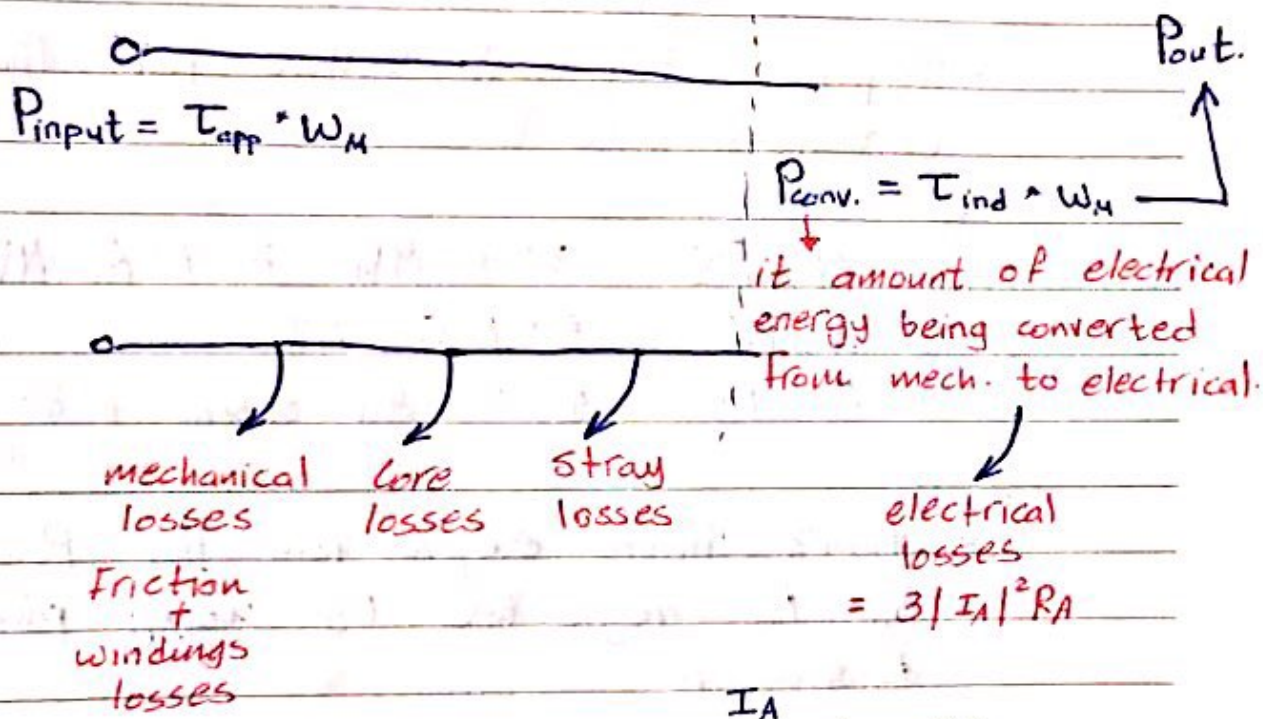 Pout.
Pinput = τapp * ωM
Pconv. = τind * ωM
it amount of electrical
energy being converted
from mech. to electrical.
mechanical
losses
Core
losses
stray
losses
electrical
losses
= 3|IA|²RA
Friction
+
windings
losses
IA